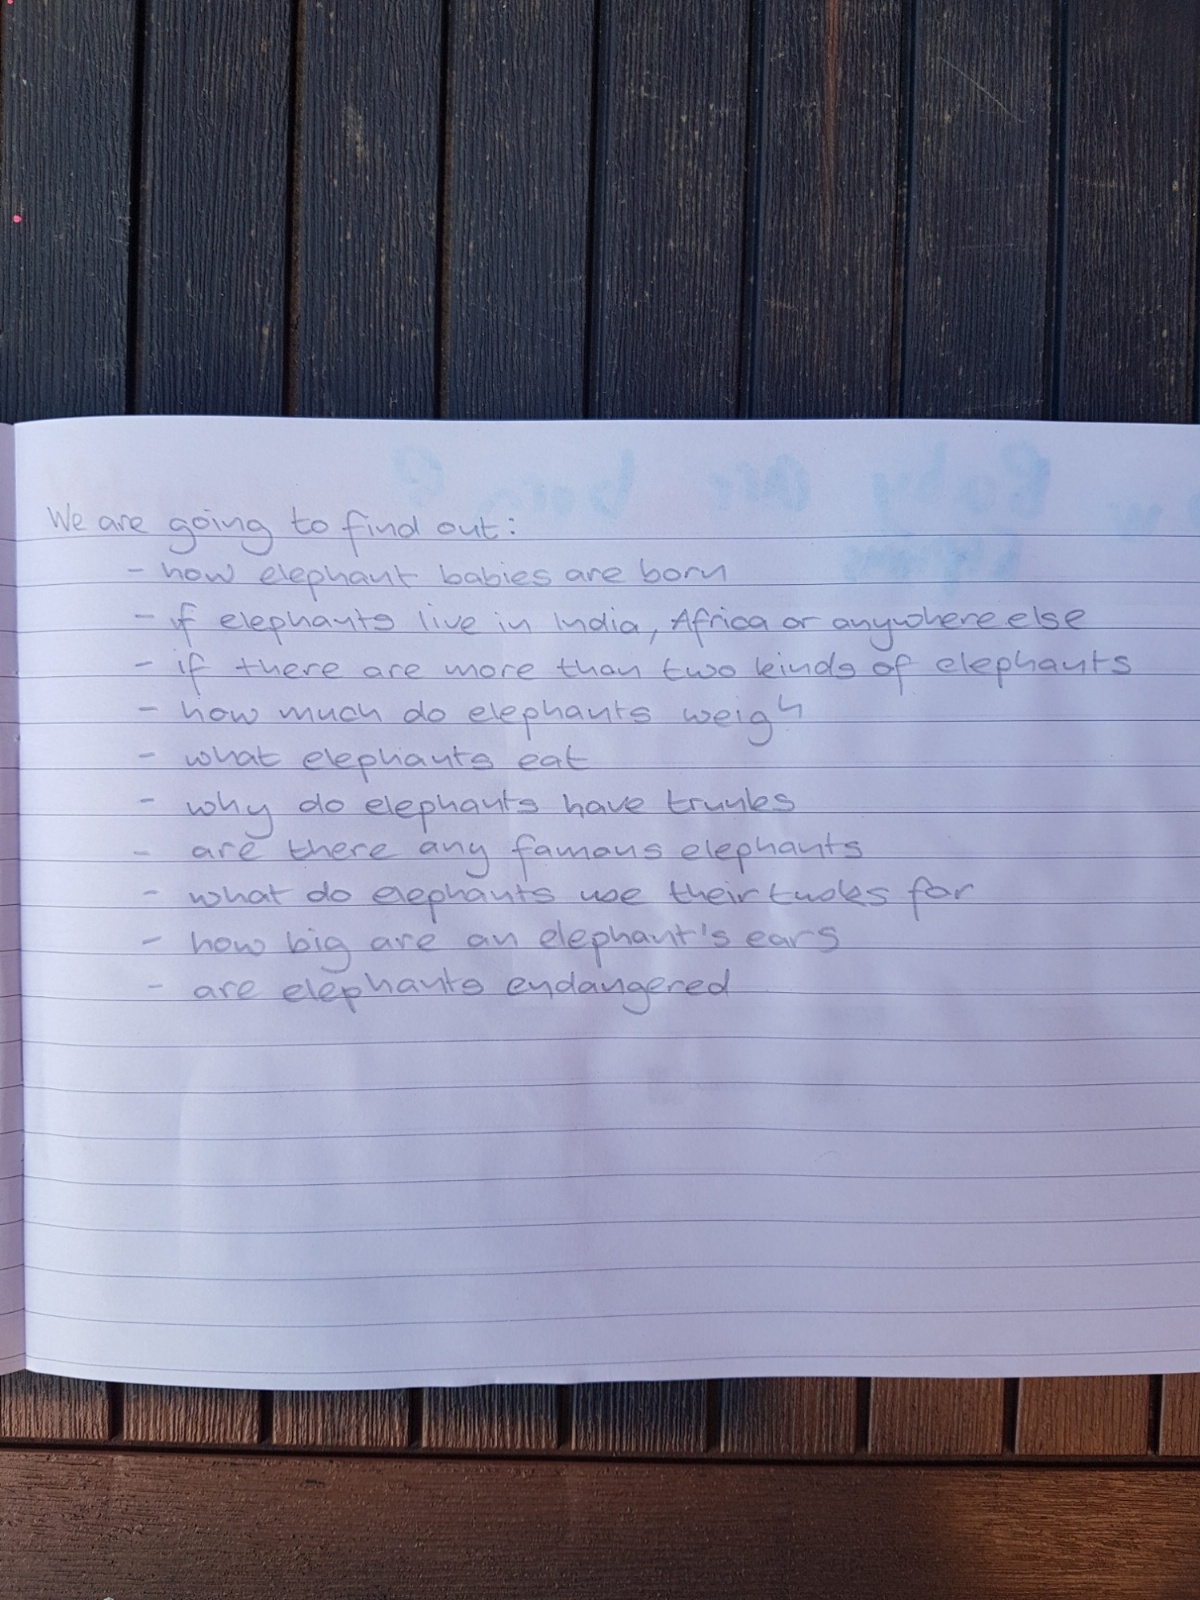 We are going to find out:
- how elephant babies are born
- if elephants live in India, Africa or anywhere else
- if there are more than two kinds of elephants
- how much do elephants weigh
- what elephants eat
- why do elephants have trunks
- are there any famous elephants
- what do elephants use their tusks for
- how big are an elephant's ears
- are elephants endangered